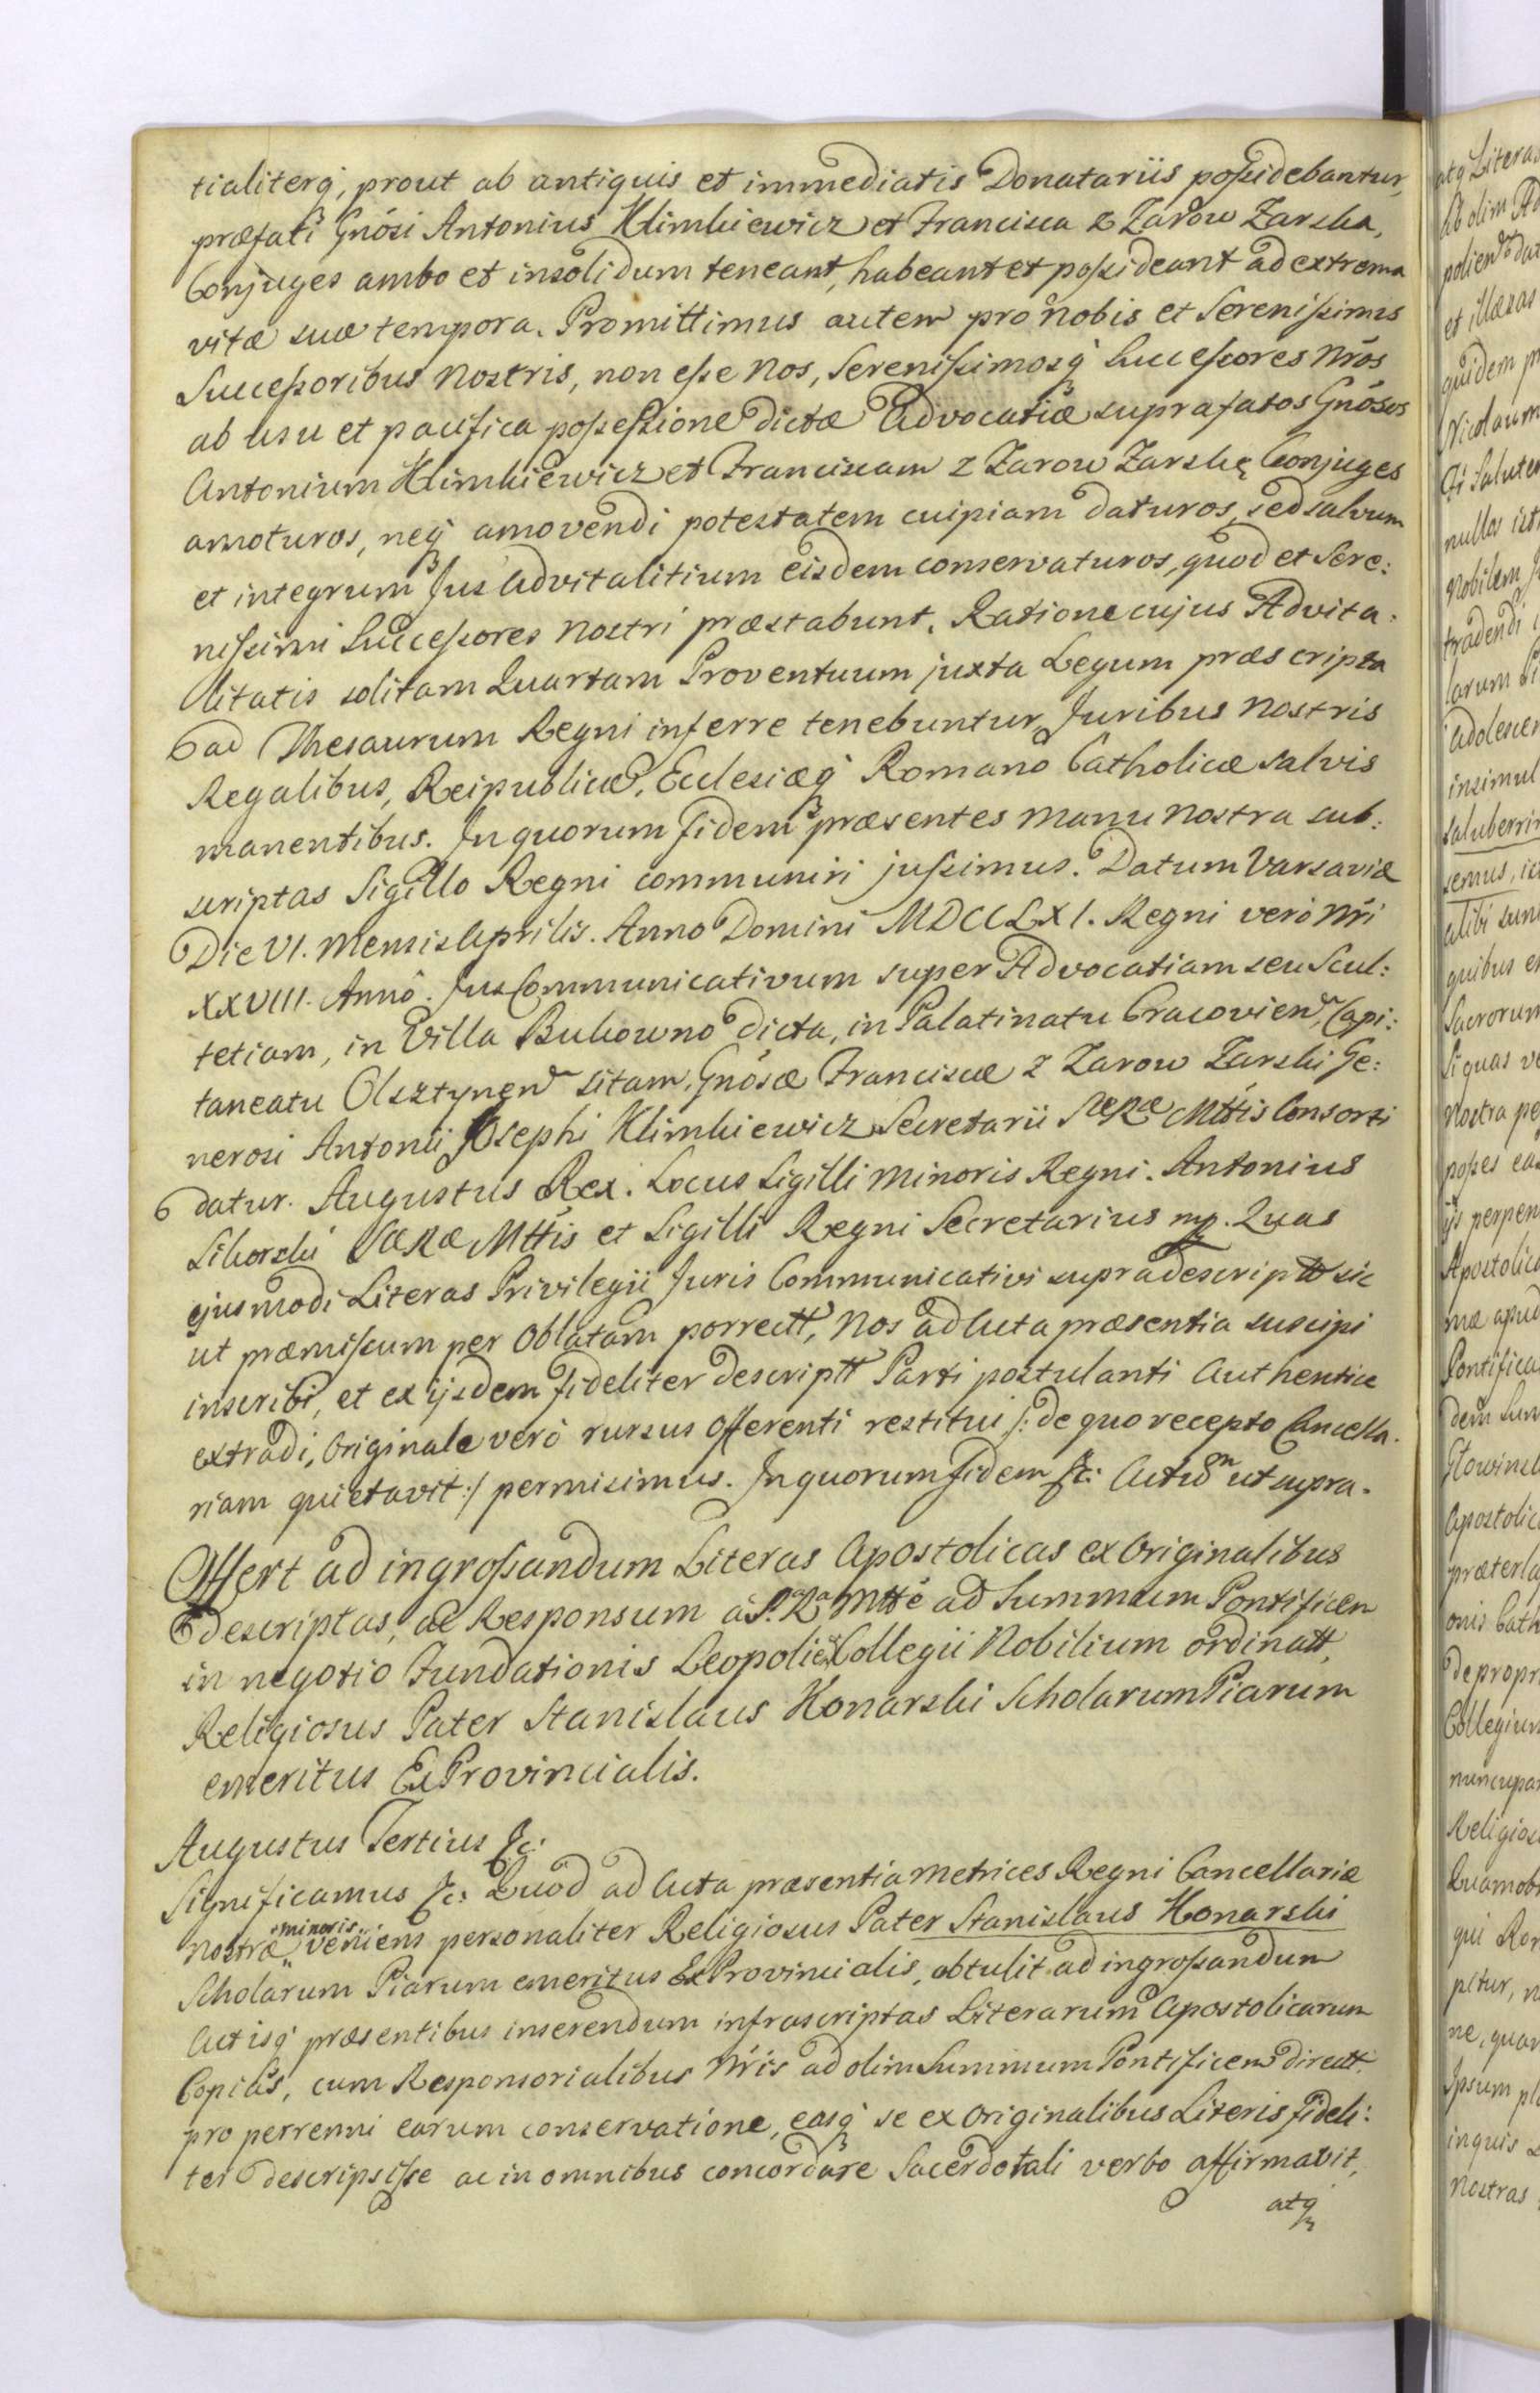 tialiterq, prout ab antiquis et immediatis Donatariis possidebantur,
præfati Gnosi Antonius Klimkiewicz et Francisca z Zarow Zarska,
Conjuges ambo et insolidum teneant, habeant et possideant ad extrema
vitæ suæ tempora. Promittimus autem pro Nobis et Serenissimis
Successoribus Nostris, non esse Nos, Serenissimosq Successores Nros
ab usu et pacifica possessione dictæ Advocatiæ suprafatos Gnosos
Antonium Klimkiewicz et Franciscam z Zarow Zarskę Conjuges
amoturos, neq amovendi potestatem cuipiam daturos, sed salvum
et integrum Jus Advitalitium eisdem conservaturos, quod et Sere:
nissimi Successores Nostri præstabunt. Ratione cujus Advita:
litatis solitam Quartam Proventuum juxta Legum præscripta
ad Thesaurum Regni inferre tenebuntur, Juribus Nostris
Regalibus, Reipublicæ, Ecclesiæq Romano Catholicæ salvis
manentibus. In quorum fidem præsentes manu Nostra sub:
scriptas Sigillo Regni communiri jussimus. Datum Varsaviæ
Die VI. Mensis Aprilis. Anno Domini MDCCLXI. Regni verò Nri
XXVIII. Annô. Jus Communicativum super Advocatiam seu Scul:
tetiam, in Villa Bukowno dicta, in Palatinatu Cracovien, Capi:
taneatu Olsztynen sitam, Gnosæ Franciscæ z Zarow Zarski Ge:
nerosi Antonii Josephi Klimkiewicz Secretarii SæRæ Mttis Consorti
datur. Augustus Rex. Locus Sigilli Minoris Regni. Antonius
Sikorski SæRæ Mttis et Sigilli Regni Secretarius mp. Quas
ejusmodi Literas Privilegii Juris Communicativi supradescriptt sic
ut præmissum per Oblatam porrectt, Nos ad Acta præsentia suscipi
inscribi, et ex ijsdem fideliter descriptt Parti postulanti Authentice
extradi, Originale verò rursus Offerenti restitui /: de quo recepto Cancella-
riam quietavit :/ permisimus. In quorum fidem &c: Actum ut supra.
Offert ad ingrossandum Literas Apostolicas ex Originalibus
descriptas, ac Responsum à S. Ra Mtte ad Summum Pontificem
in negotio Fundationis Leopolien Collegii Nobilium ordinatt,
Religiosus Pater Stanislaus Konarski Scholarum Piarum
emeritus ExProvincialis.
Augustus Tertius &c:
Significamus &c: Quod ad Acta præsentia Metrices Regni Cancellariæ
minoris
Nostræ veniens personaliter Religiosus Pater Stanislaus Konarski
Scholarum Piarum emeritus ExProvincialis, obtulit ad ingrossandum
Actisq præsentibus inserendum infrascriptas Literarum Apostolicarum
Copias, cum Responsorialibus Nris ad olim Summum Pontificem directt.
pro perrenni earum conservatione, easq se ex Originalibus Literis fideli:
ter descripsisse ac in omnibus concordare Sacerdotali verbo affirmavit,
atq